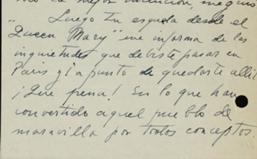 Luego tu esquela desde el
"Queen Mary" me informa de las
inquietudes que debiste pasar en
Paris y a punto de quedarte allí.
¡Que pena! En lo que han
convertido aquel pueblo de
maravilla por todos conceptos.